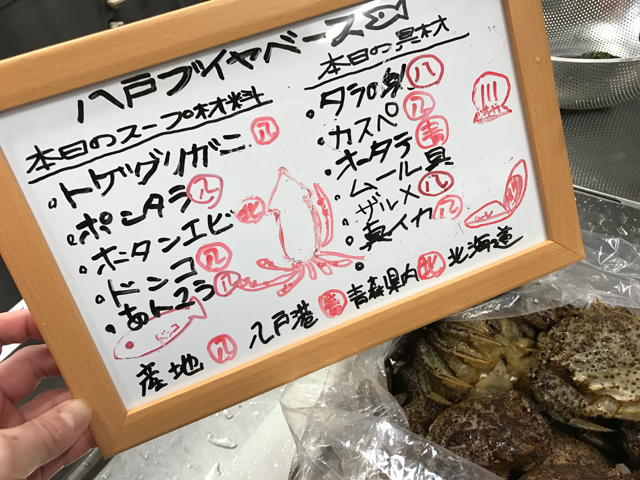 八戸ブイヤベース
本日のスープ材料
・トゲグリガニ 八
・ポンタラ 八
・ボタンエビ 北
・ドンコ 八
・あんこう 八
本日の具材
・タラ 八
・カスベ 八
・ホタテ 青
・ムール貝
・ザルメ 八
・真イカ 八
・
ドンコ
産地 八 八戸港 青 青森県内 北 北海道